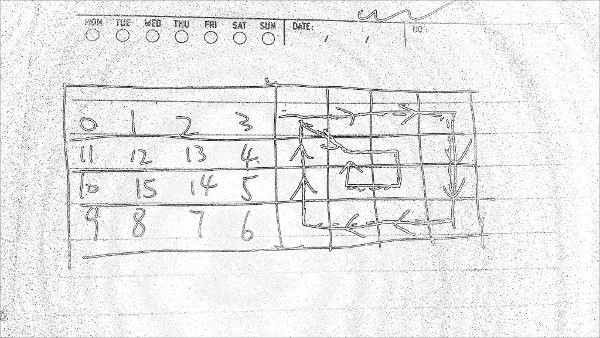 MON TUE WED THU FRI SAT SUN DATE: / / NO.
0 1 2 3
11 12 13 4
10 15 14 5
9 8 7 6